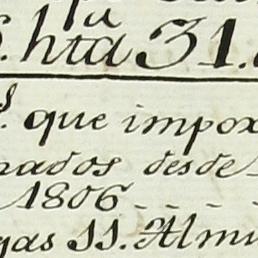 hta 31.
que impor
nados desde
1806
gas SS. Almi